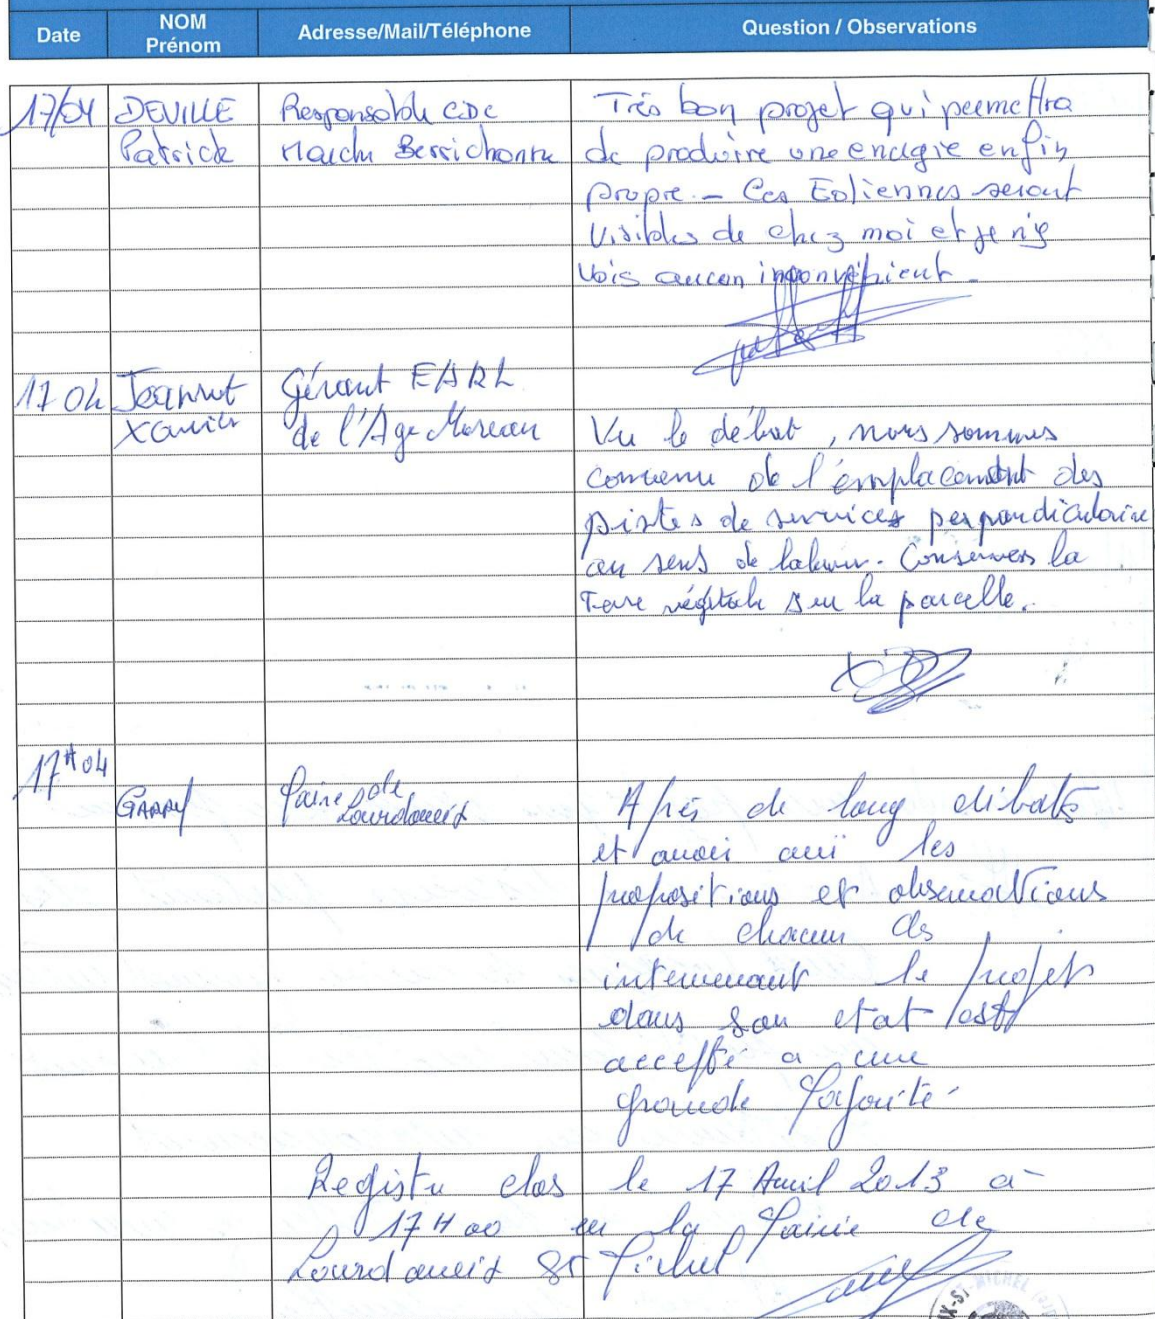 Date NOM Prénom Adresse/Mail/Téléphone Question / Observations
17/04 DEVILLE Responsable CDC Très bon projet qui permettra
Patrick Marche Berrichonne de produire une energie enfin
propre - Ces Eoliennes seront
visibles de chez moi et je n'y
vois aucun inconvénient -
17 04 Jeannot Gérant EARL
Xavier de l'Age Moreau Vu le débat, nous sommes
convenu de l'emplacement des
pistes de services perpendiculaire
au sens de labour. Conserver la
Terre végétale sur la parcelle.
17 04
GARRY Maire de
Lourdoueix Après de long débats
et avoir oui les
propositions et observations
de chacun des
intervenant le projet
dans son etat est
accepté a une
grande Majorité -
Registre clos le 17 Avril 2013 a
17 H 00 en la Mairie de
Lourdoueix St Michel
ST-MICHEL